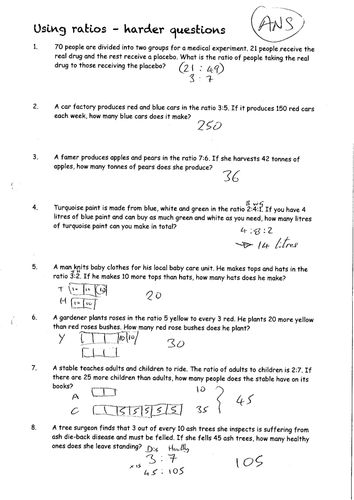 Using ratios – harder questions
ANS
1. 70 people are divided into two groups for a medical experiment. 21 people receive the
real drug and the rest receive a placebo. What is the ratio of people taking the real
drug to those receiving the placebo?
(21 : 49)
3 : 7
2. A car factory produces red and blue cars in the ratio 3:5. If it produces 150 red cars
each week, how many blue cars does it make?
250
3. A famer produces apples and pears in the ratio 7:6. If she harvests 42 tonnes of
apples, how many tonnes of pears does she produce?
36
B W G
4. Turquoise paint is made from blue, white and green in the ratio 2:4:1. If you have 4
litres of blue paint and can buy as much green and white as you need, how many litres
of turquoise paint can you make in total?
4 : 8 : 2
14 litres
5. A man knits baby clothes for his local baby care unit. He makes tops and hats in the
T H
ratio 3:2. If he makes 10 more tops than hats, how many hats does he make?
T 10 10 10
H 10 10
20
6. A gardener plants roses in the ratio 5 yellow to every 3 red. He plants 20 more yellow
than red roses bushes. How many red rose bushes does he plant?
Y 10 10
30
7. A stable teaches adults and children to ride. The ratio of adults to children is 2:7. If
there are 25 more children than adults, how many people does the stable have on its
books?
A 10
C 5 5 5 5 5 35
45
8. A tree surgeon finds that 3 out of every 10 ash trees she inspects is suffering from
ash die-back disease and must be felled. If she fells 45 ash trees, how many healthy
ones does she leave standing?
Dis Healthy
3 : 7
×15
45 : 105
105